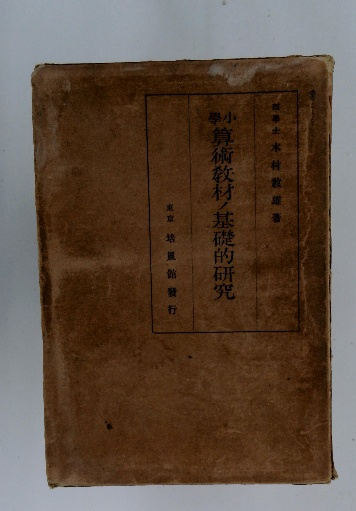 理學士 木村教雄著
小學 算術敎材ノ基礎的硏究
東京 培風館發行